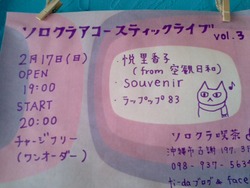 ソロクラアコースティックライブ vol.3
2月17日(日)
OPEN
19:00
START
20:00
チャージフリー
(ワンオーダー)
・悦里香子
(from 空観日和)
・Souvenir
・ラップップ83
ソロクラ喫茶
沖縄市
098-937-563
ti-daブログ & face